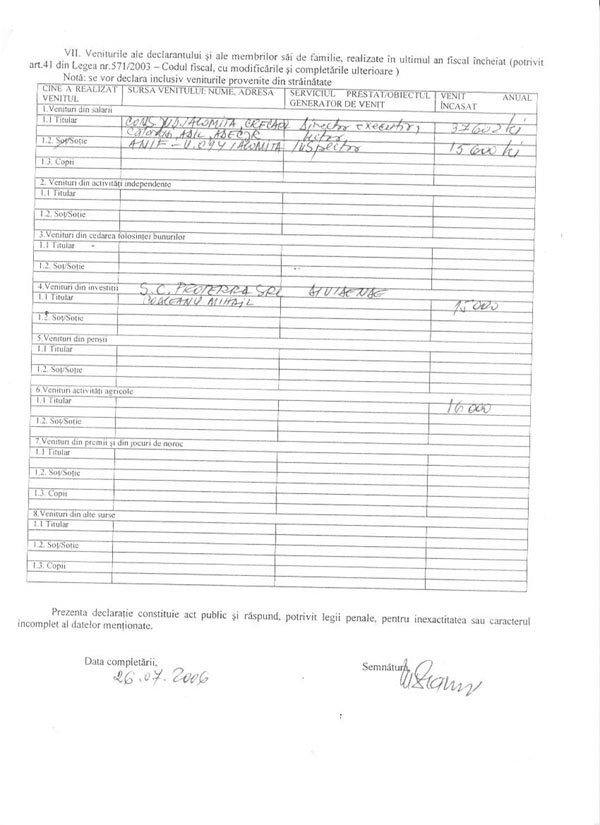 VII. Veniturile ale declarantului și ale membrilor săi de familie, realizate în ultimul an fiscal încheiat (potrivit
art.41 din Legea nr.571/2003 – Codul fiscal, cu modificările și completările ulterioare )
Notă: se vor declara inclusiv veniturile provenite din străinătate
CINE A REALIZAT VENITUL SURSA VENITULUI: NUME, ADRESA SERVICIUL PRESTAT/OBIECTUL GENERATOR DE VENIT VENIT ANUAL ÎNCASAT
1.Venituri din salarii
1.1 Titular CONS. JUD. IALOMITA, Director executiv, 37602 lei
1.2. Soț/Soție ANIF - IALOMITA Inspector 15600 lei
1.3. Copii
2. Venituri din activități independente
1.1 Titular
1.2. Soț/Soție
3.Venituri din cedarea folosinței bunurilor
1.1 Titular -
1.2. Soț/Soție
4.Venituri din investiții S.C. PROTERRA SRL
1.1 Titular MIHAIL 15000
1.2. Soț/Soție
5.Venituri din pensii
1.1 Titular
1.2. Soț/Soție
6.Venituri activități agricole
1.1 Titular 16000
1.2. Soț/Soție
7.Venituri din premii și din jocuri de noroc
1.1 Titular
1.2. Soț/Soție
1.3. Copii
8.Venituri din alte surse
1.1 Titular
1.2. Soț/Soție
1.3. Copii
Prezenta declarație constituie act public și răspund, potrivit legii penale, pentru inexactitatea sau caracterul
incomplet al datelor menționate.
Data completării, Semnătura
26.07.2006